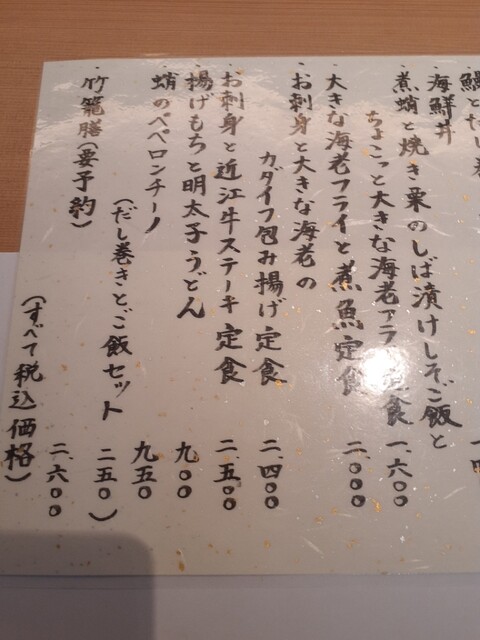 鰻とだし巻
・海鮮丼
・煮蛸と焼き栗のしば漬けしそご飯と
ちょこっと大きな海老フライ定食 一、六〇〇
・大きな海老フライと煮魚定食 二、〇〇〇
・お刺身と大きな海老の
カダイフ包み揚げ定食 二、四〇〇
・お刺身と近江牛ステーキ定食 二、五〇〇
・揚げもちと明太子うどん 九〇〇
・蛸のペペロンチーノ 九五〇
(だし巻きとご飯セット 二五〇)
・竹籠膳(要予約) 二、六〇〇
(すべて税込価格)